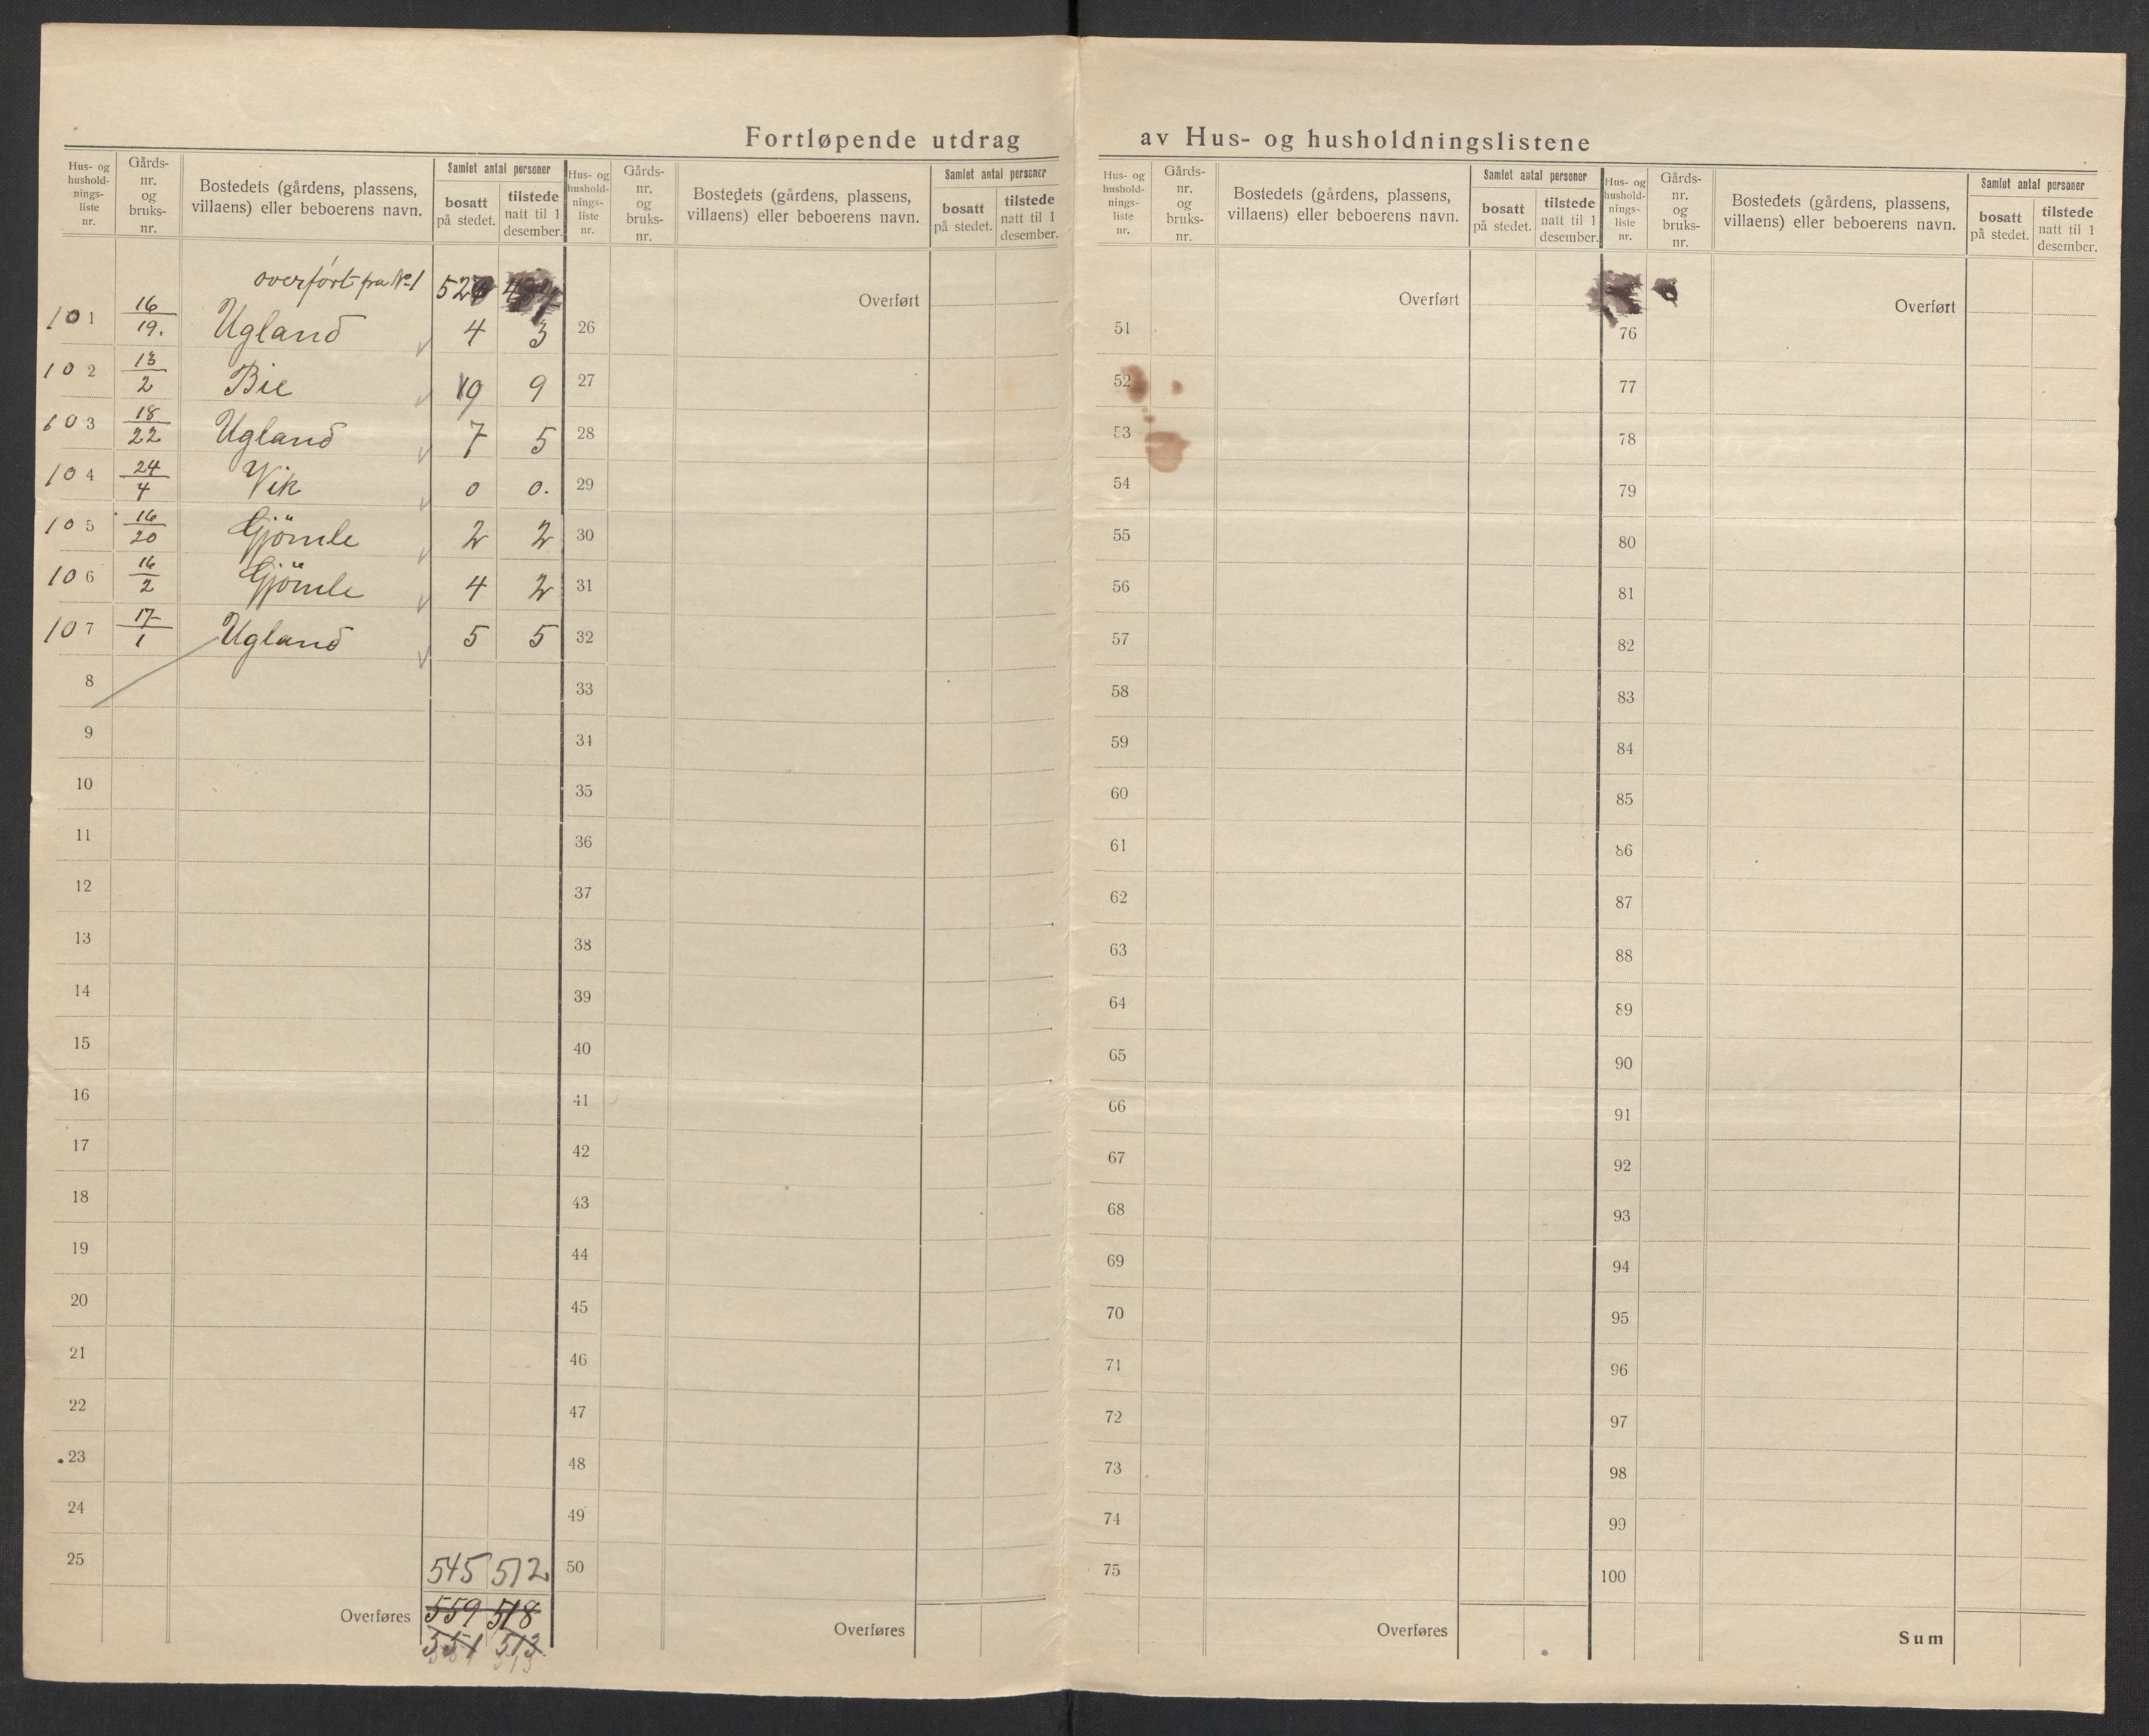 Fortløpende utdrag av Hus- og husholdningslistene
Hus- og hushold-nings-liste nr.
Gårds-nr. og bruks-nr.
Bostedets (gårdens, plassens, villaens) eller beboerens navn.
Samlet antal personer
bosatt på stedet.
tilstede natt til 1 desember.
overført fra No 1
101 16/19. Ugland 4 3
102 13/2 Bie 9 9
103 18/22 Ugland 7 5
104 24/4 Vik 0 0.
105 16/20 Gjömle 2 2
106 16/2 Gjömle 4 2
107 17/1 Ugland 5 5
8
9
10
11
12
13
14
15
16
17
18
19
20
21
22
23
24
25 545 512
Overføres 559 518
551 513
Hus- og hushold-nings-liste nr.
Gårds-nr. og bruks-nr.
Bostedets (gårdens, plassens, villaens) eller beboerens navn.
Samlet antal personer
bosatt på stedet.
tilstede natt til 1 desember.
Overført
26
27
28
29
30
31
32
33
31
35
36
37
38
39
40
41
42
43
44
45
46
47
48
49
50
Overføres
Hus- og hushold-nings-liste nr.
Gårds-nr. og bruks-nr.
Bostedets (gårdens, plassens, villaens) eller beboerens navn.
Samlet antal personer
bosatt på stedet.
tilstede natt til 1 desember.
Overført
51
52
53
54
55
56
57
58
59
60
61
62
63
64
65
66
67
68
69
70
71
72
73
74
75
Overføres
Hus- og hushold-nings-liste nr.
Gårds-nr. og bruks-nr.
Bostedets (gårdens, plassens, villaens) eller beboerens navn.
Samlet antal personer
bosatt på stedet.
tilstede natt til 1 desember.
Overført
76
77
78
79
80
81
82
83
84
85
86
87
88
89
90
91
92
93
94
95
96
97
98
99
100
Sum